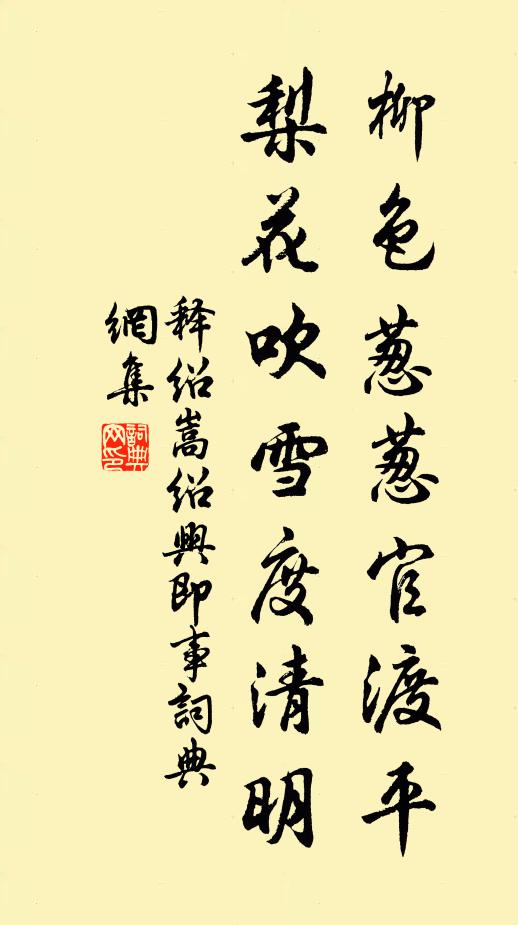 柳色葱葱官渡平
梨花吹雪度清明
释绍嵩绍興即事詞典
網集
詞典
网印